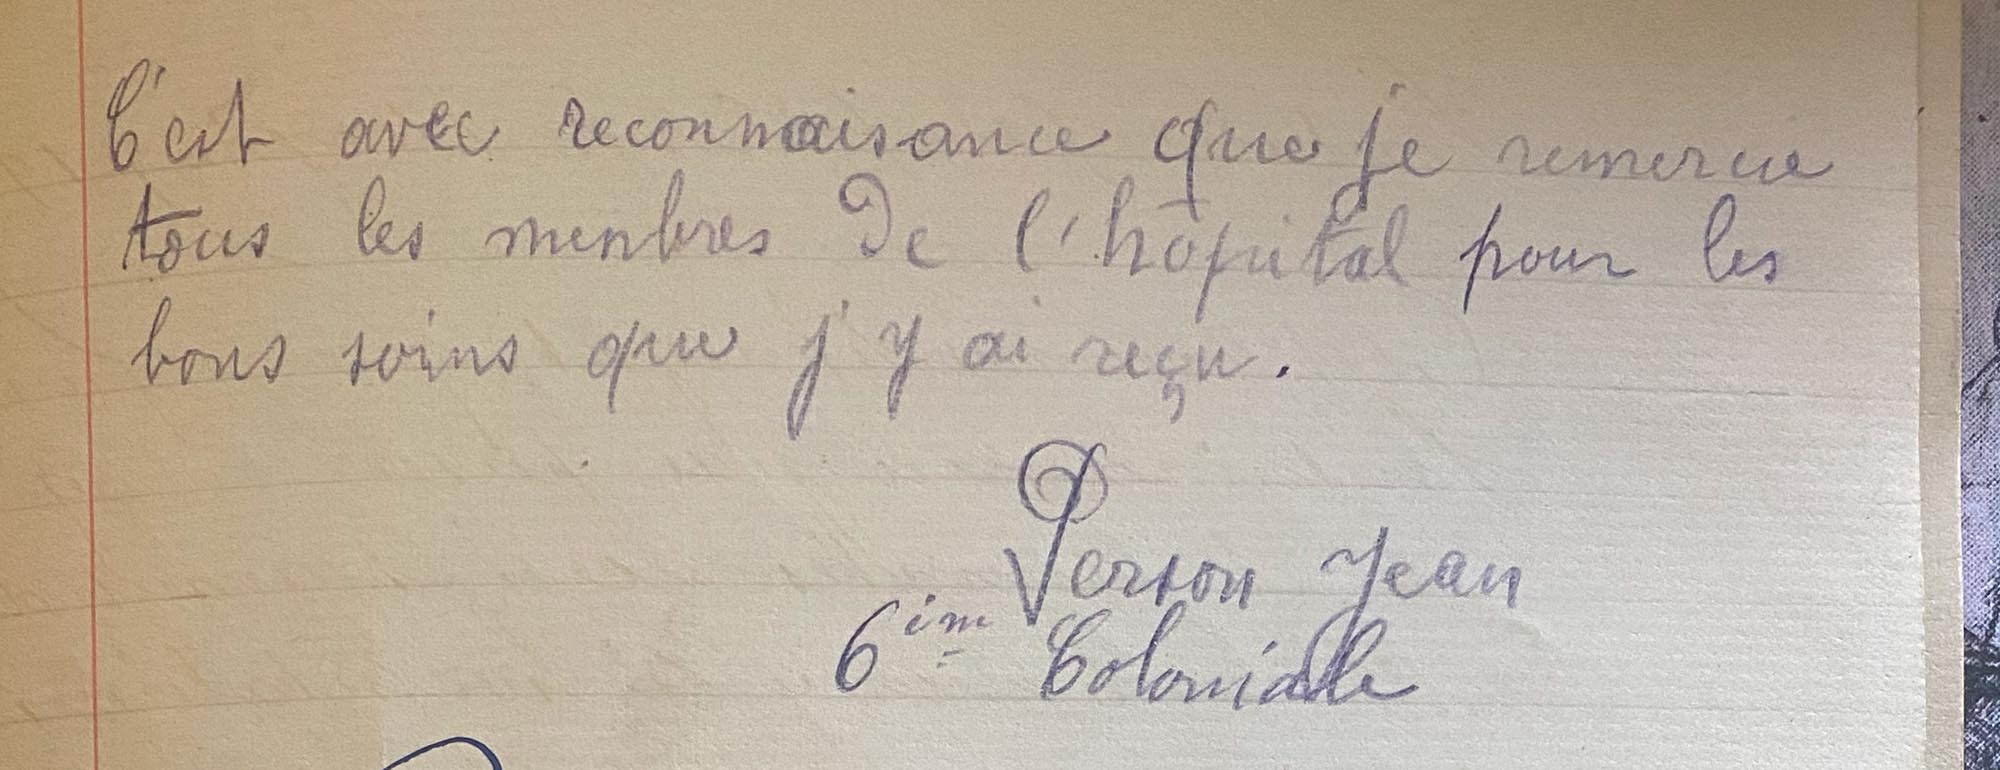 C'est avec reconnaisance que je remercie
tous les menbres de l'hôpital pour les
bons soins que j'y ai reçu.
Person Jean
6ime Coloniale